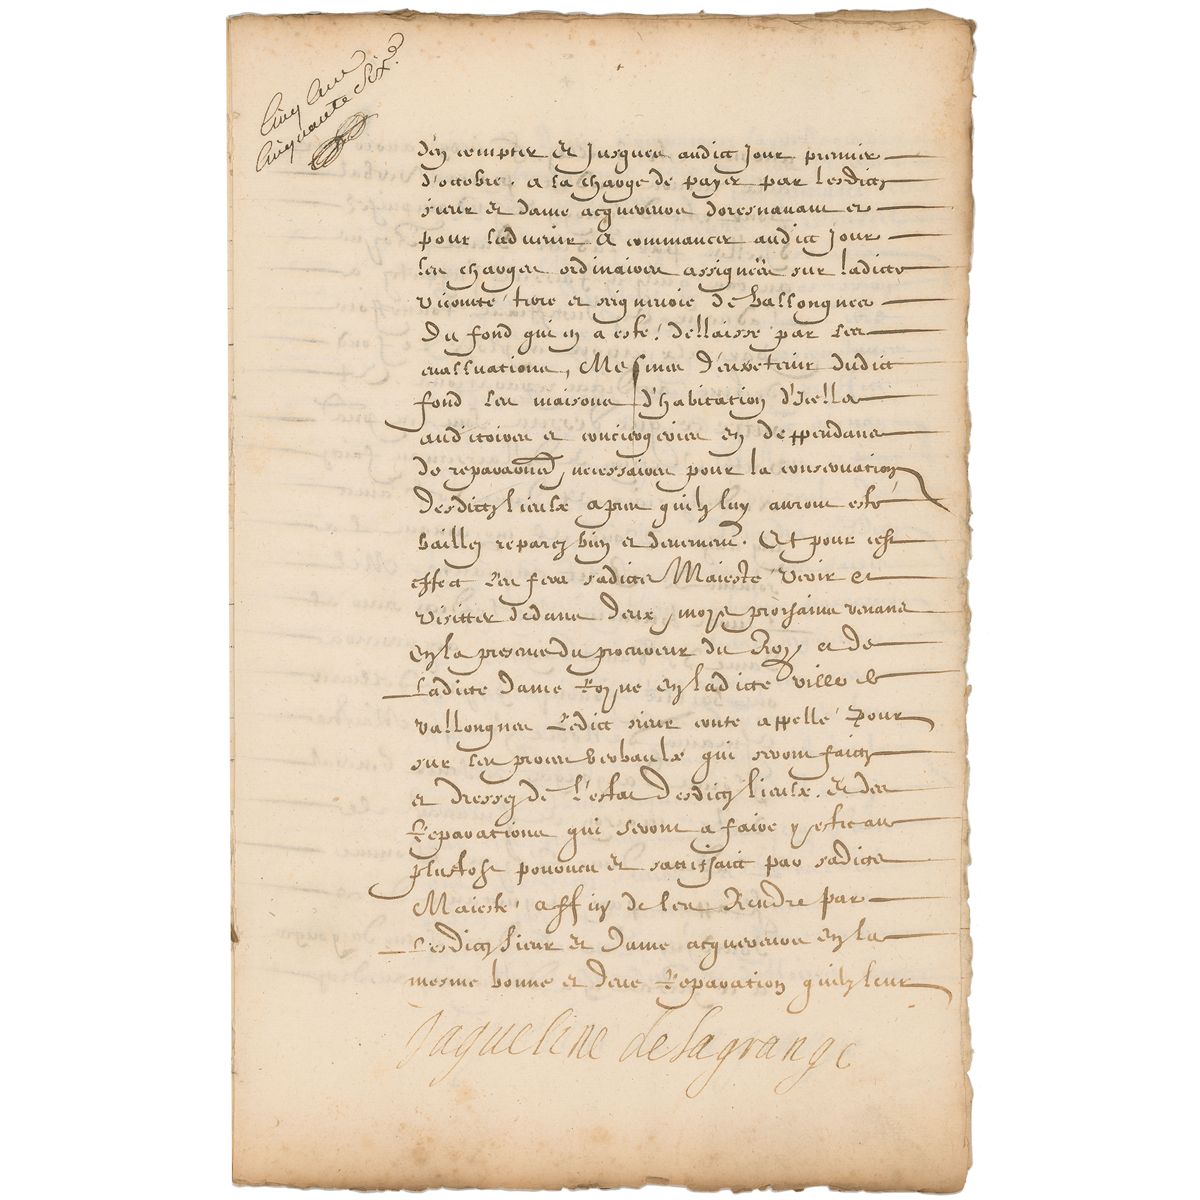 Cinq Cens
Cinquante Six.
d'en compter Et Jusques audict Jour premier
d'octobre. a la charge de payer par lesdictz
sieur et dame acquereurs doresnavant et
pour ladvenir A commancer audict Jour
les charges ordinaires assignées sur ladicte
viconté terre et seigneurie de Vallongnes
du fond qui en a esté dellaissé par les
evalluations, Mesmes d'entretenir dudict
fond les maisons d'habitation d'Icelle
auditoires et concierges en deppendans
de reparations necessaires pour la conservation
desdictz lieulx apres quilz luy auront esté
baillez reparez bien et deuement. Et pour cest
effect les fera sadicte Maiesté veoir et
visitter dedans deux moys prochains venans
en la presence du procureur du Roy et de
Ladicte dame Royne en ladicte ville de
vallongnes Ledict sieur conte appellé Pour
sur les proces verbaulx qui seront faictz
et dressez de l'estat desdictz lieulx. Et des
Reparations qui seront a faire y estre au
plustost pourveu et sattisfaict par sadicte
Maiesté affin de les Rendre par
Lesdictz sieur Et dame acquereurs en la
mesme bonne et deue Reparation quilz leur
Jaqueline de lagrange